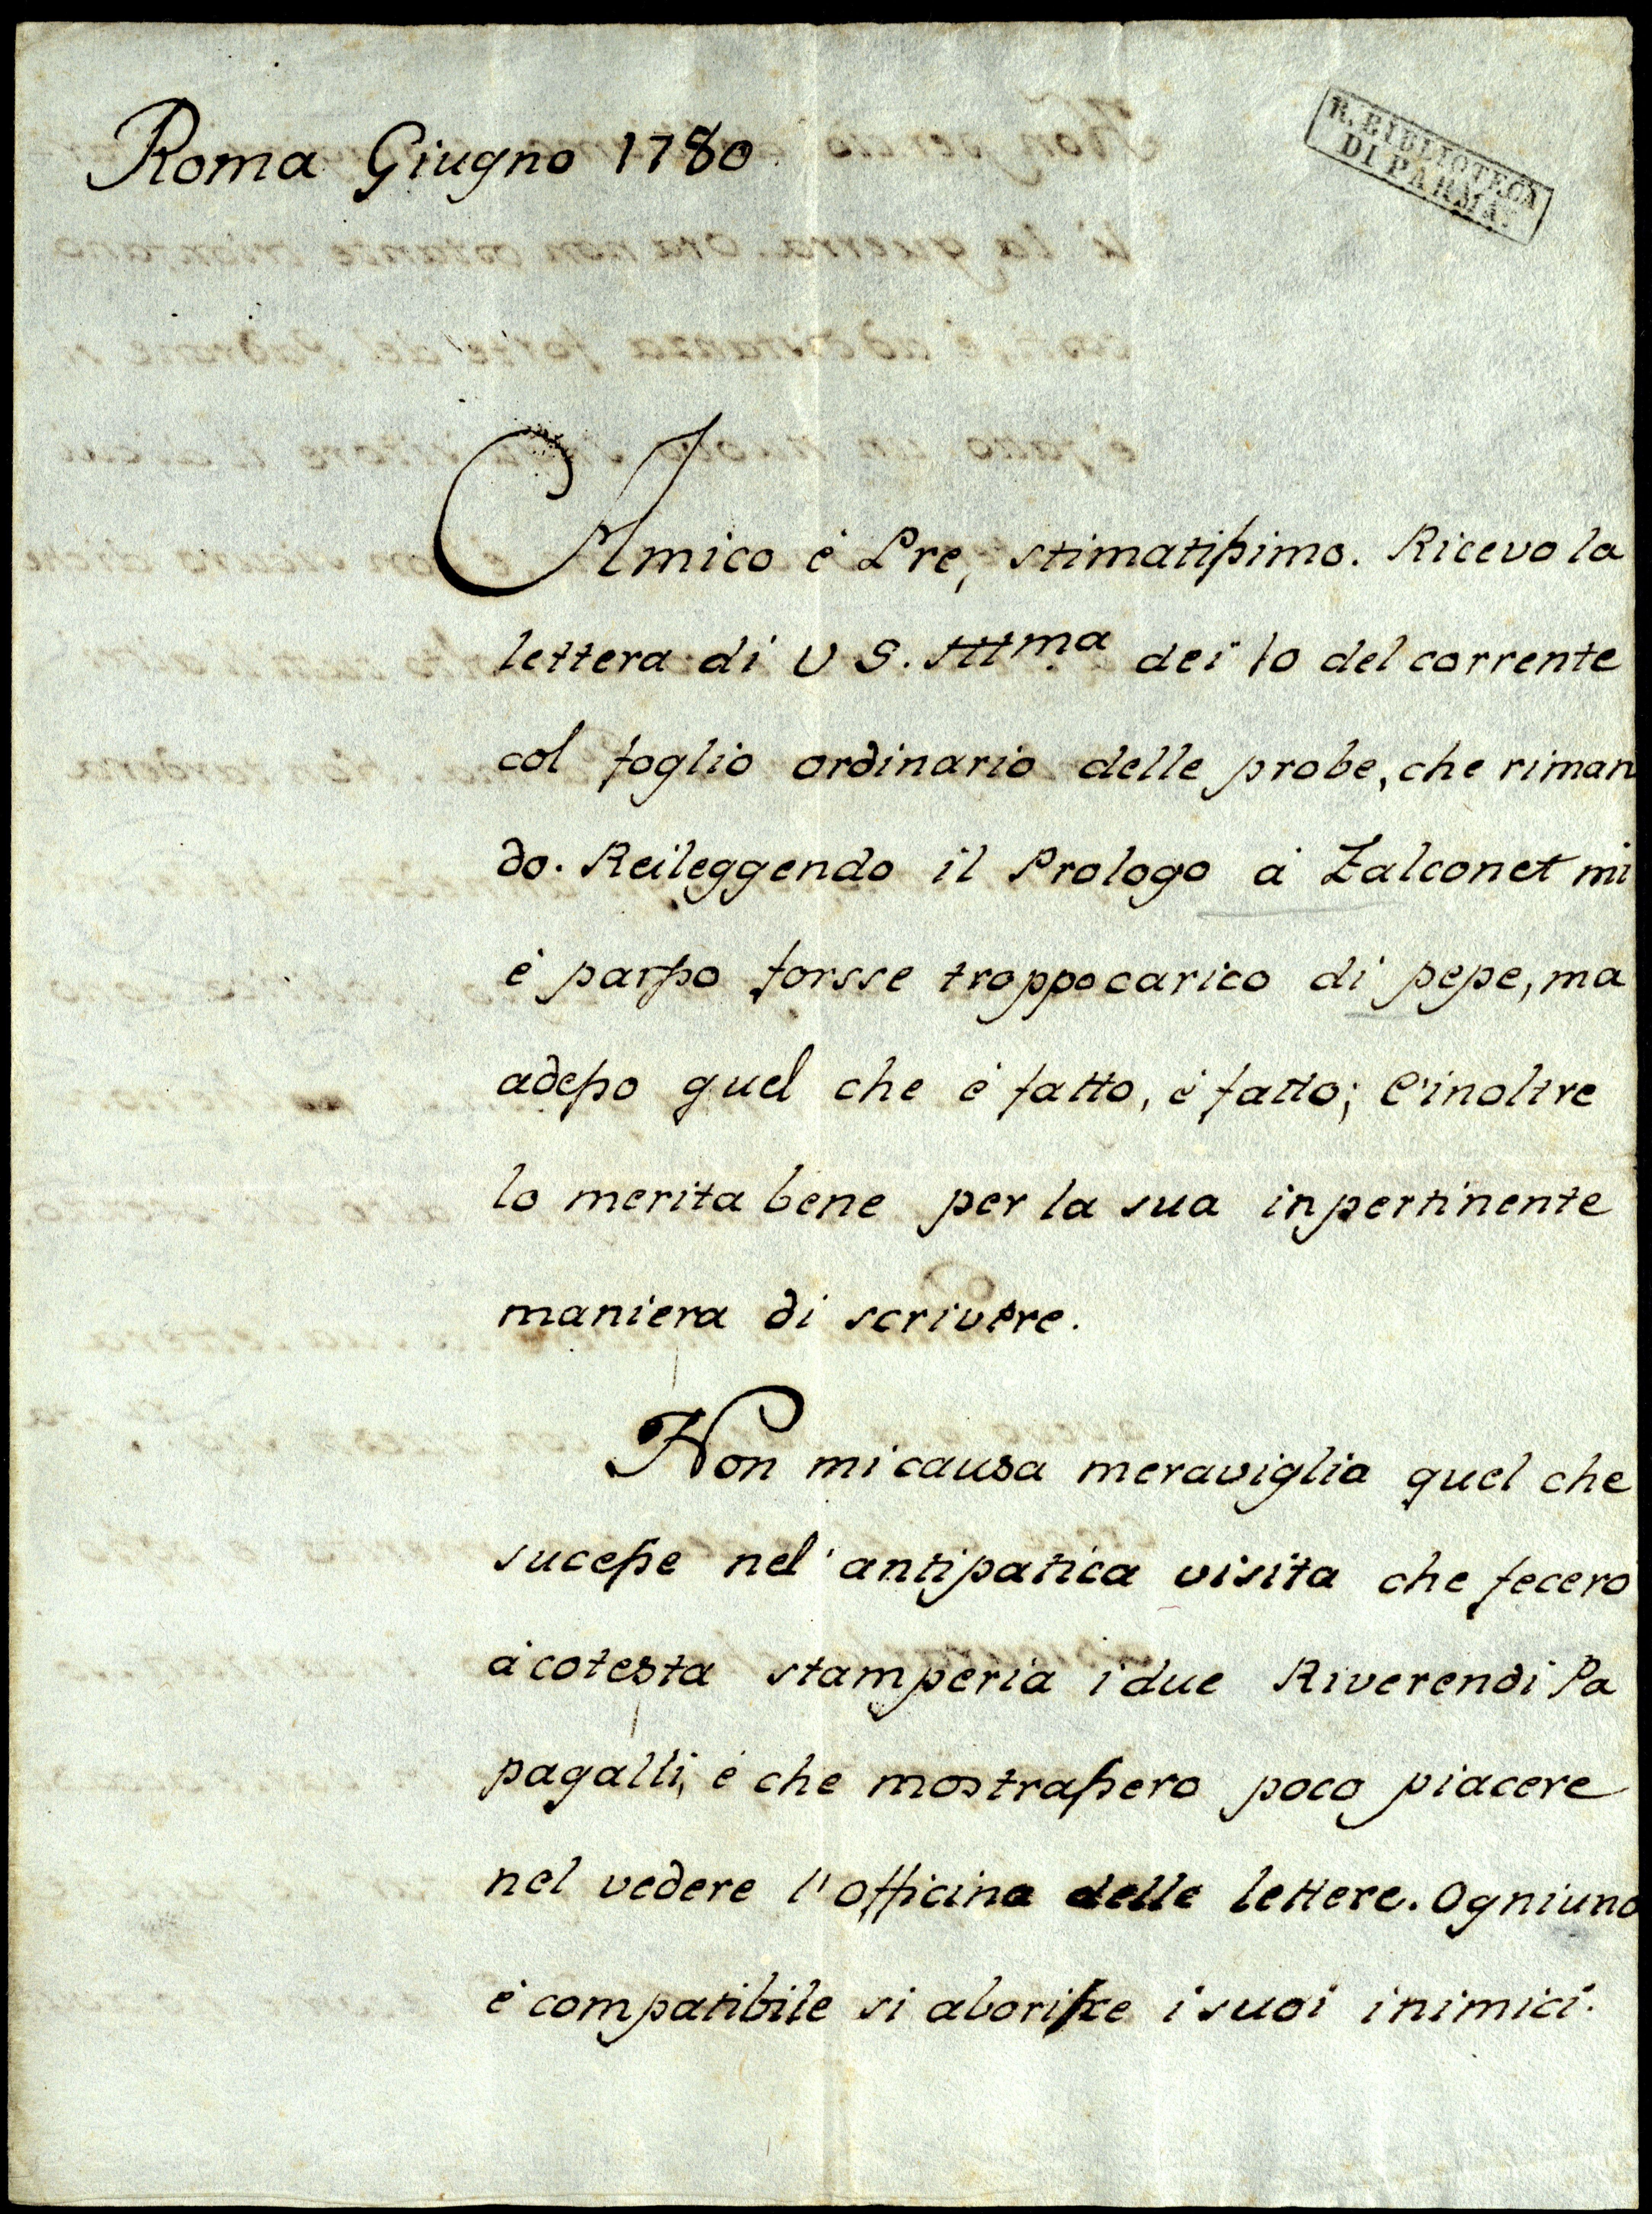 Roma Giugno 1780
R. BIBLIOTECA
DI PARMA.
Amico è Pre, stimatissimo. Ricevo la
lettera di V S. Illma dei 10 del corrente
col foglio ordinario delle probe, che riman
do. Reileggendo il Prologo à Falconet mi
è parsso forsse troppo carico di pepe, ma
adesso quel che è fatto, è fatto; e inoltre
lo merita bene per la sua inpertinente
maniera di scrivere.
Non mi causa meraviglia quel che
sucesse nel' antipatica visita che fecero
à cotesta stamperia i due Riverendi Pa
pagalli, è che mostrassero poco piacere
nel vedere l'officina delle lettere. Ogniuno
è compatibile si aborisce i suoi inimici.